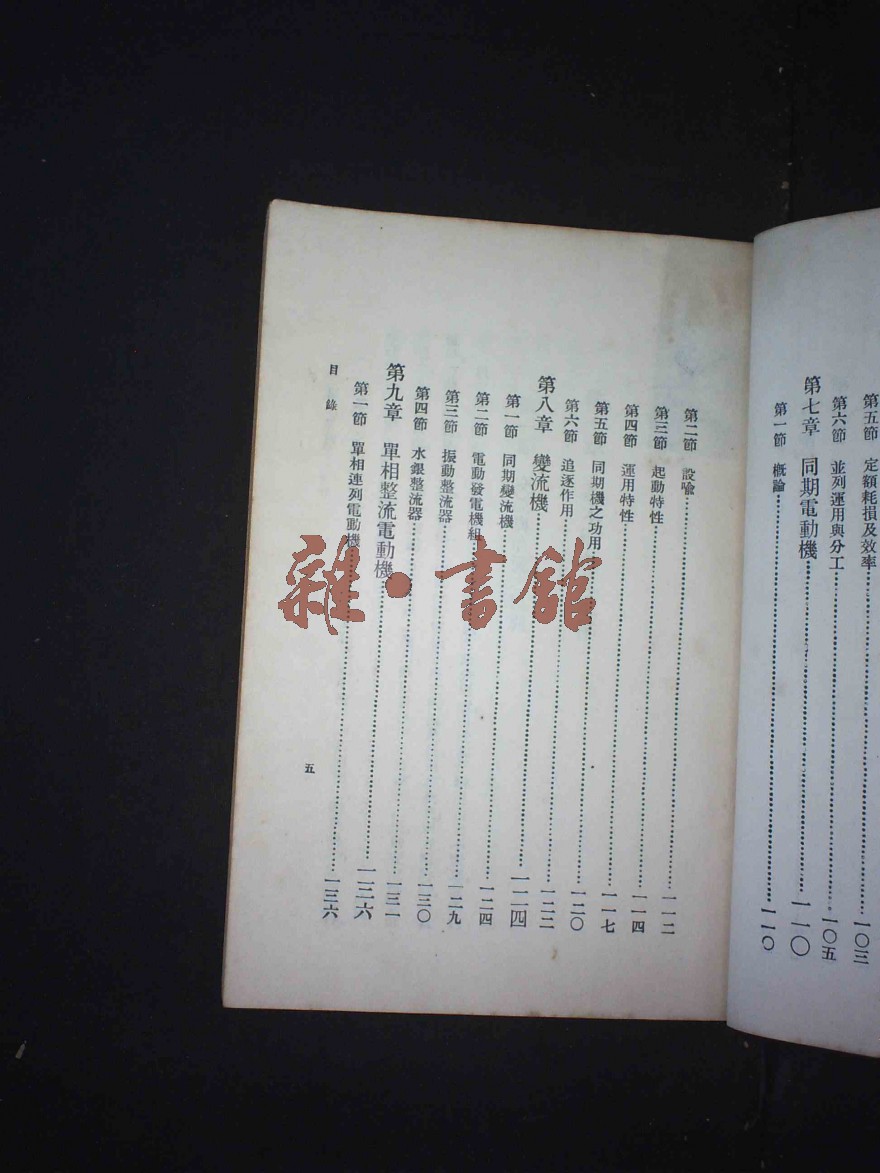 第五節 定額耗損及效率……一〇三
第六節 並列運用與分工……一〇五
第七章 同期電動機……一一〇
第一節 概論……一一〇
第二節 設喻……一一二
第三節 起動特性……一一四
第四節 運用特性……一一七
第五節 同期機之功用……一二〇
第六節 追逐作用……一二二
第八章 變流機……一二四
第一節 同期變流機……一二四
第二節 電動發電機組……一二九
第三節 振動整流器……一三〇
第四節 水銀整流器……一三一
第九章 單相整流電動機……一三六
第一節 單相連列電動機……一三六
目錄
五
雜·書館